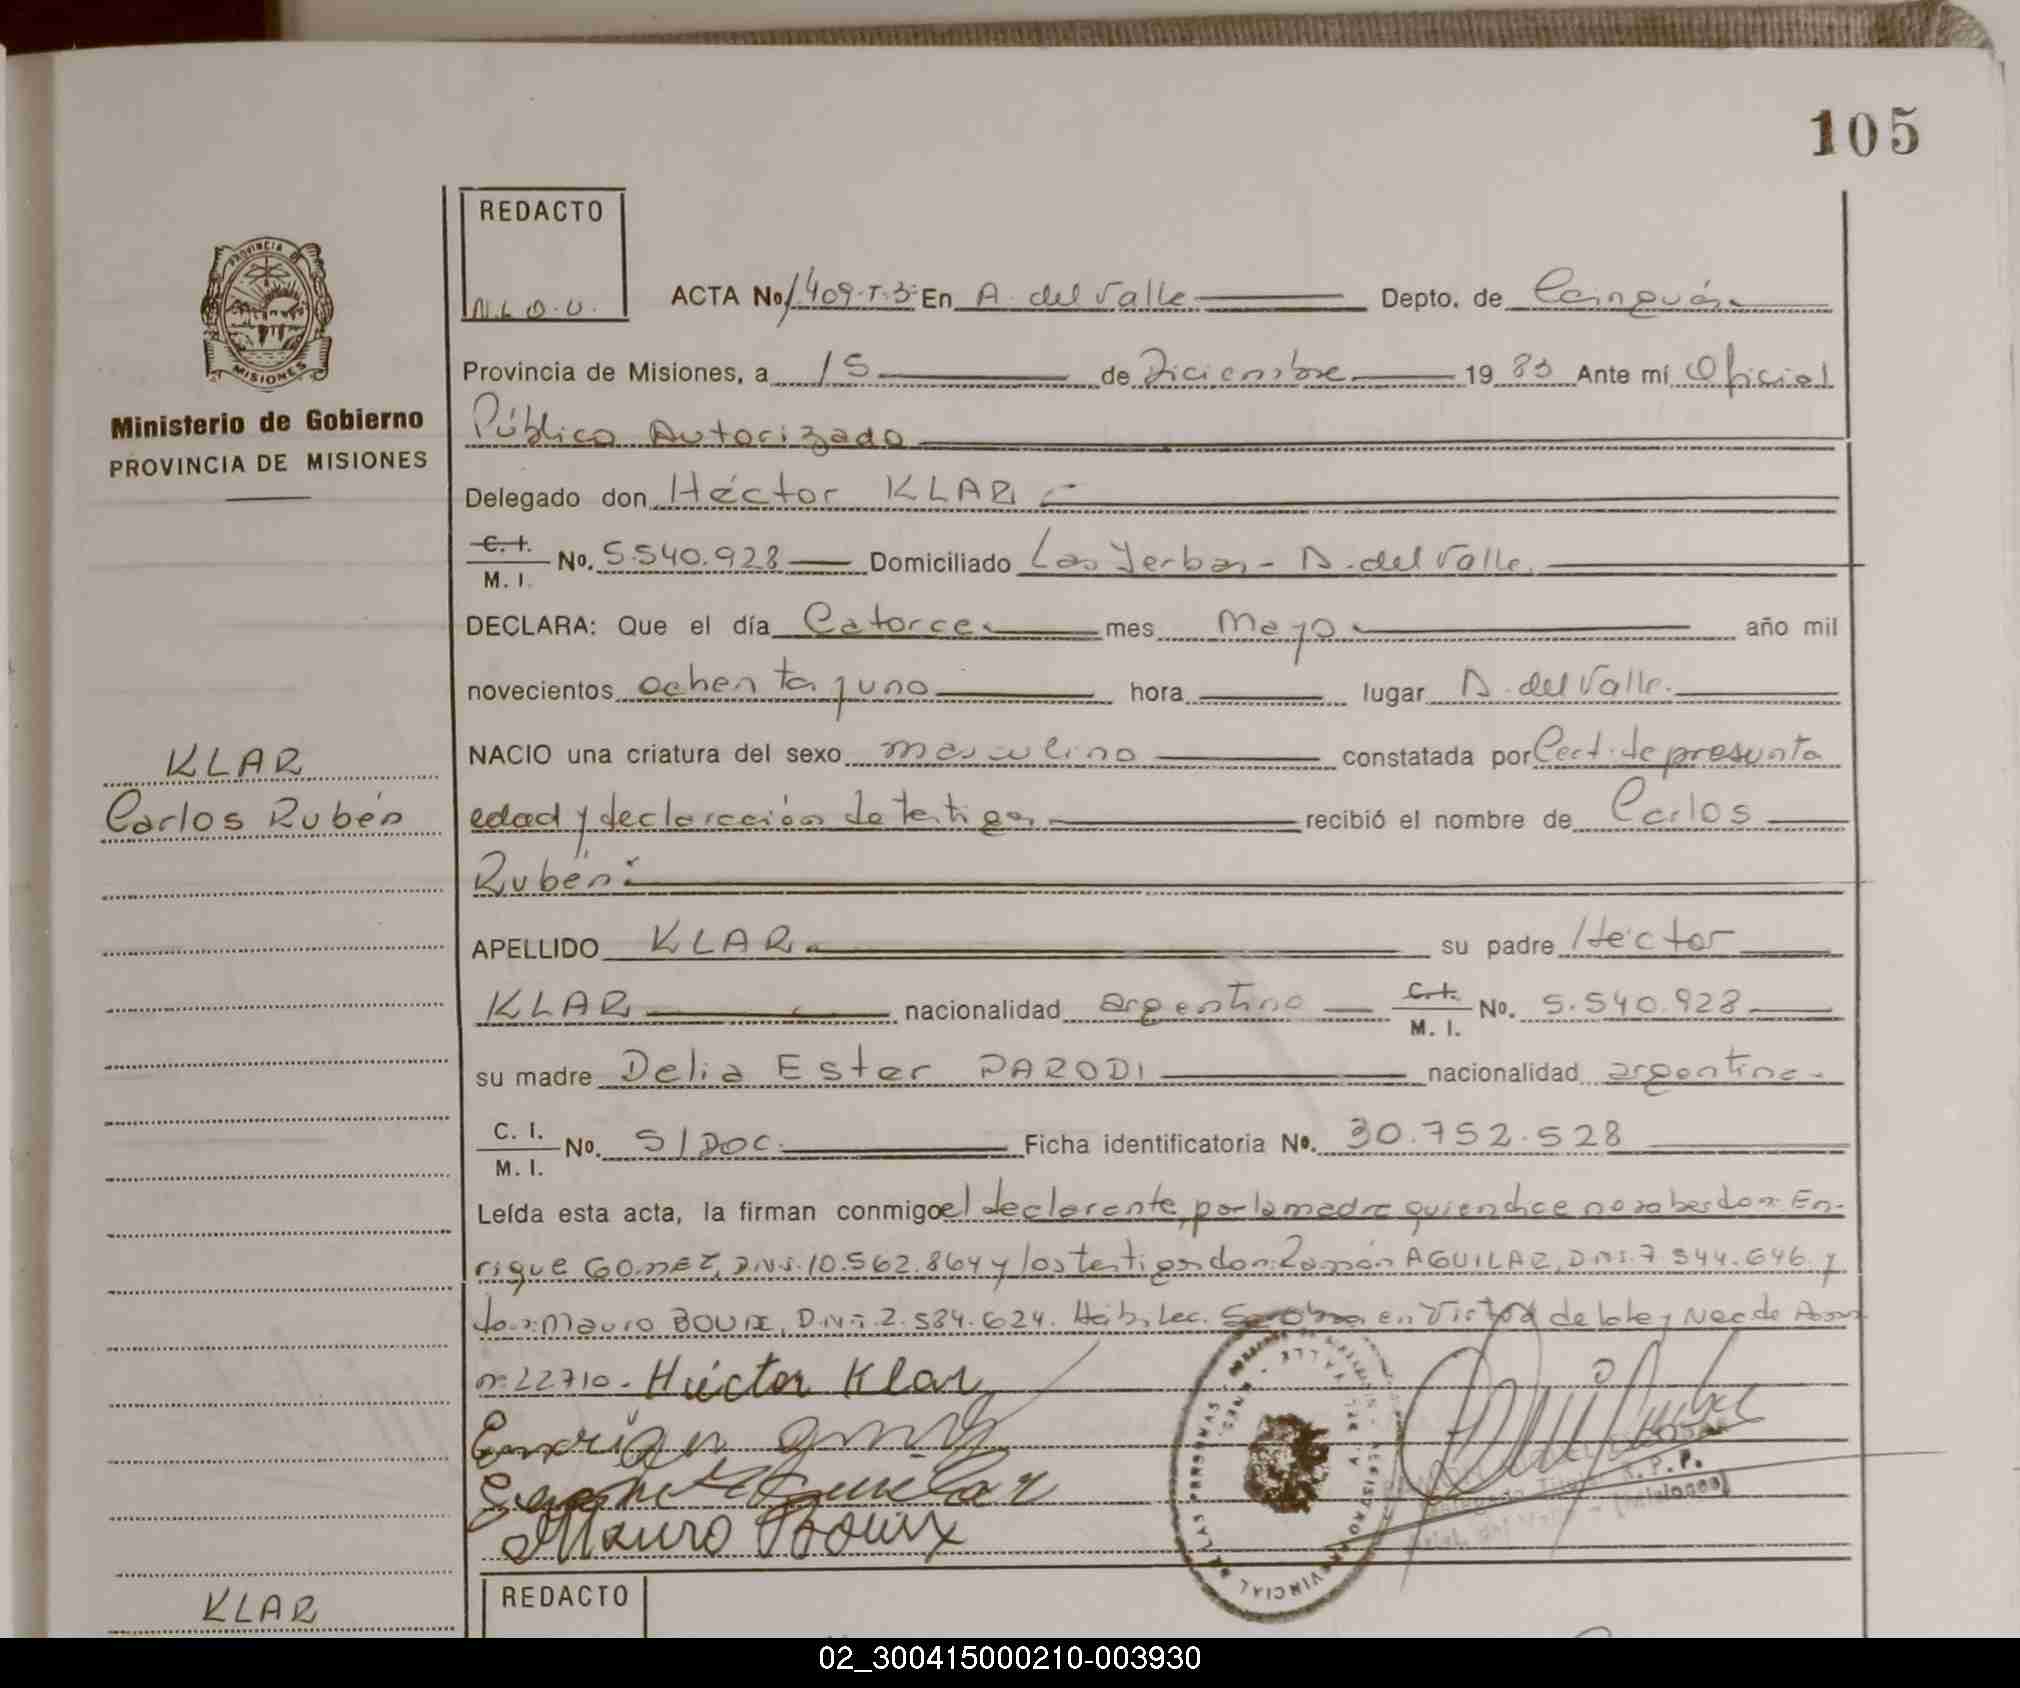 105
REDACTO
N.L.O.U.
PROVINCIA DE
MISIONES
Ministerio de Gobierno
PROVINCIA DE MISIONES
ACTA No 1.409-T-3- En A. del Valle Depto. de Cainguás
Provincia de Misiones, a 15 de Diciembre 19 83 Ante mí Oficial
Público Autorizado
Delegado don Héctor KLAR
C. I. M. I. No. 5.540.928 Domiciliado Las Yerbas - A. del Valle.
DECLARA: Que el día Catorce mes Mayo año mil
novecientos ochenta y uno hora lugar A. del Valle.
NACIO una criatura del sexo masculino constatada por Cert. de presunta
KLAR
Carlos Rubén
edad y declaración de testigos recibió el nombre de Carlos
Rubén
APELLIDO KLAR su padre Héctor
KLAR nacionalidad argentino C. I. M. I. No. 5.540.928
su madre Delia Ester PARODI nacionalidad argentina.
C. I. M. I. No. S/DOC. Ficha identificatoria No. 30.752.528
Leída esta acta, la firman conmigo el declarante, por la madre quien dice no saber don: En-
rique GOMEZ, D.N.I. 10.562.864 y los testigos don: Ramón AGUILAR, D.N.I. 7.544.646. y
don: Mauro BOUIX, D.N.I. 2.584.624. Háb, Lec. en Virtud de la ley Nac de
n: 22710. Héctor Klar
Mauro Bouix
REDACTO
KLAR
02_300415000210-003930